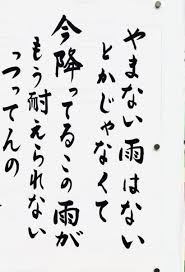 やまない雨はない
とかじゃなくて
今降ってるこの雨が
もう耐えられない
っつってんの